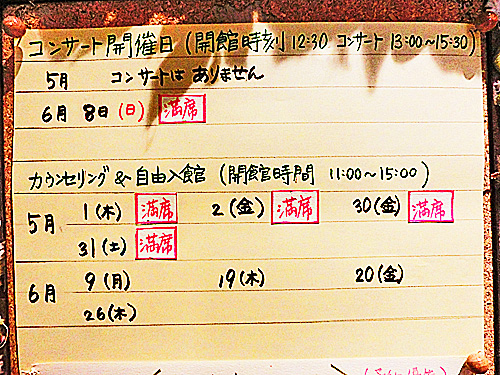 コンサート開催日（開館時刻12:30 コンサート 13:00～15:30）
5月 コンサートは ありません
6月 8日（日） 満席
カウンセリング＆自由入館（開館時間 11:00～15:00）
5月 1（木） 満席 2（金） 満席 30（金） 満席
31（土） 満席
6月 9（月） 19（木） 20（金）
26（木）